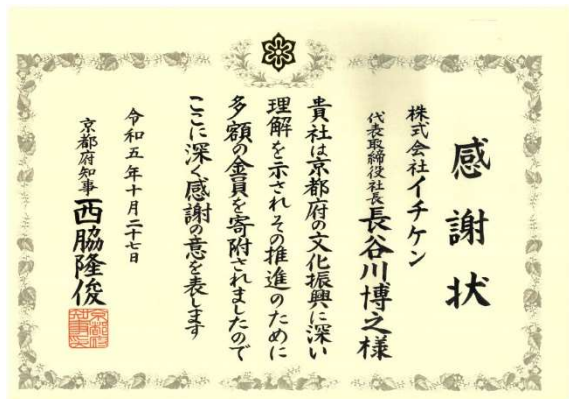 感謝状
株式会社イチケン
代表取締役社長 長谷川博之様
貴社は京都府の文化振興に深い
理解を示されその推進のために
多額の金員を寄附されましたので
ここに深く感謝の意を表します
令和五年十月二十七日
京都府知事 西脇隆俊
京都府
知事之